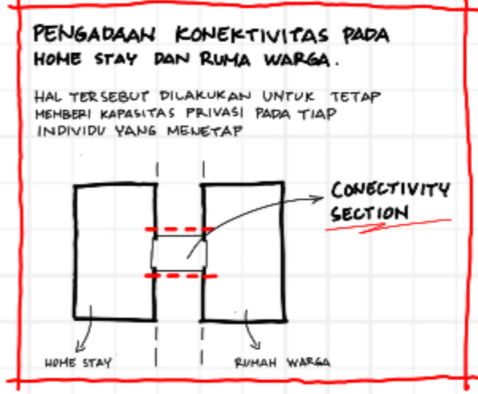 PENGADAAN KONEKTIVITAS PADA
HOME STAY DAN RUMA WARGA.
HAL TERSEBUT DILAKUKAN UNTUK TETAP
MEMBERI KAPASITAS PRIVASI PADA TIAP
INDIVIDU YANG MENETAP
CONECTIVITY
SECTION
HOME STAY
RUMAH WARGA